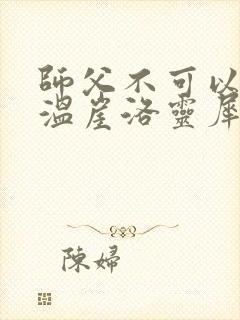 師父不可以
溫崖洛靈犀
陳婦